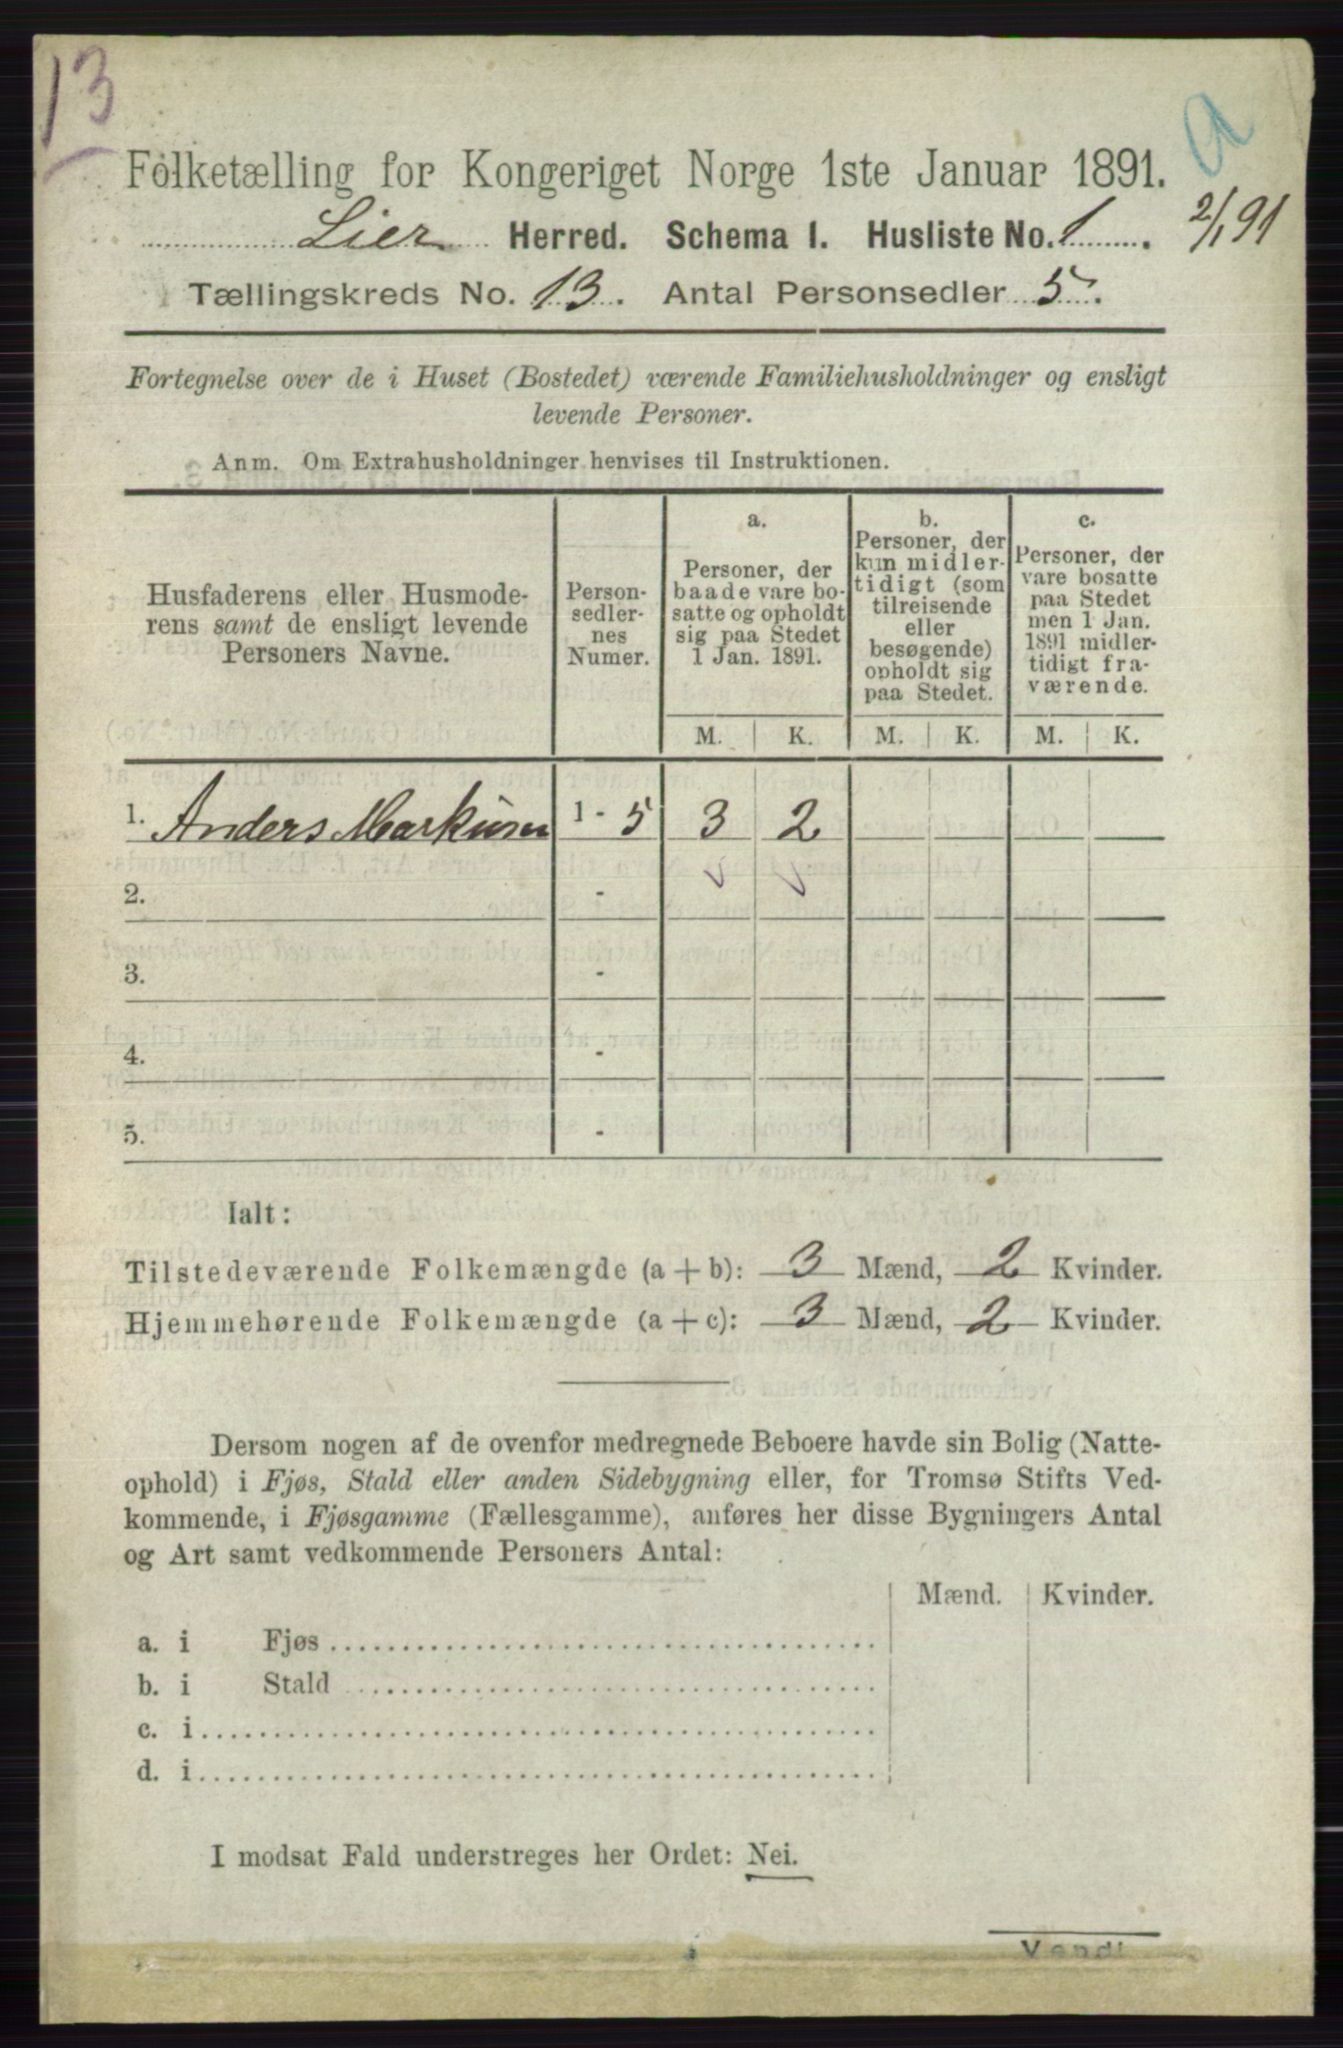 13
a
Folketælling for Kongeriget Norge 1ste Januar 1891.
Lier Herred. Schema I. Husliste No. 1.
2/1 91
Tællingskreds No. 13. Antal Personsedler 5.
Fortegnelse over de i Huset (Bostedet) værende Familiehusholdninger og ensligt
levende Personer.
Anm. Om Extrahusholdninger henvises til Instruktionen.
Husfaderens eller Husmode-
rens samt de ensligt levende
Personers Navne.
Person-
sedler-
nes
Numer.
a.
Personer, der
baade vare bo-
satte og opholdt
sig paa Stedet
1 Jan. 1891.
b.
Personer, der
kun midler-
tidigt (som
tilreisende
eller
besøgende)
opholdt sig
paa Stedet.
c.
Personer, der
vare bosatte
paa Stedet
men 1 Jan.
1891 midler-
tidigt fra-
værende.
M. K. M. K. M. K.
1. Anders Markusen 1 - 5 3 2
2. -
3. -
4. -
5. -
Ialt:
Tilstedeværende Folkemængde (a + b): 3 Mænd, 2 Kvinder.
Hjemmehørende Folkemængde (a + c): 3 Mænd, 2 Kvinder.
Dersom nogen af de ovenfor medregnede Beboere havde sin Bolig (Natte-
ophold) i Fjøs, Stald eller anden Sidebygning eller, for Tromsø Stifts Ved-
kommende, i Fjøsgamme (Fællesgamme), anføres her disse Bygningers Antal
og Art samt vedkommende Personers Antal:
Mænd. Kvinder.
a. i Fjøs
b. i Stald
c. i
d. i
I modsat Fald understreges her Ordet: Nei.
Vend!